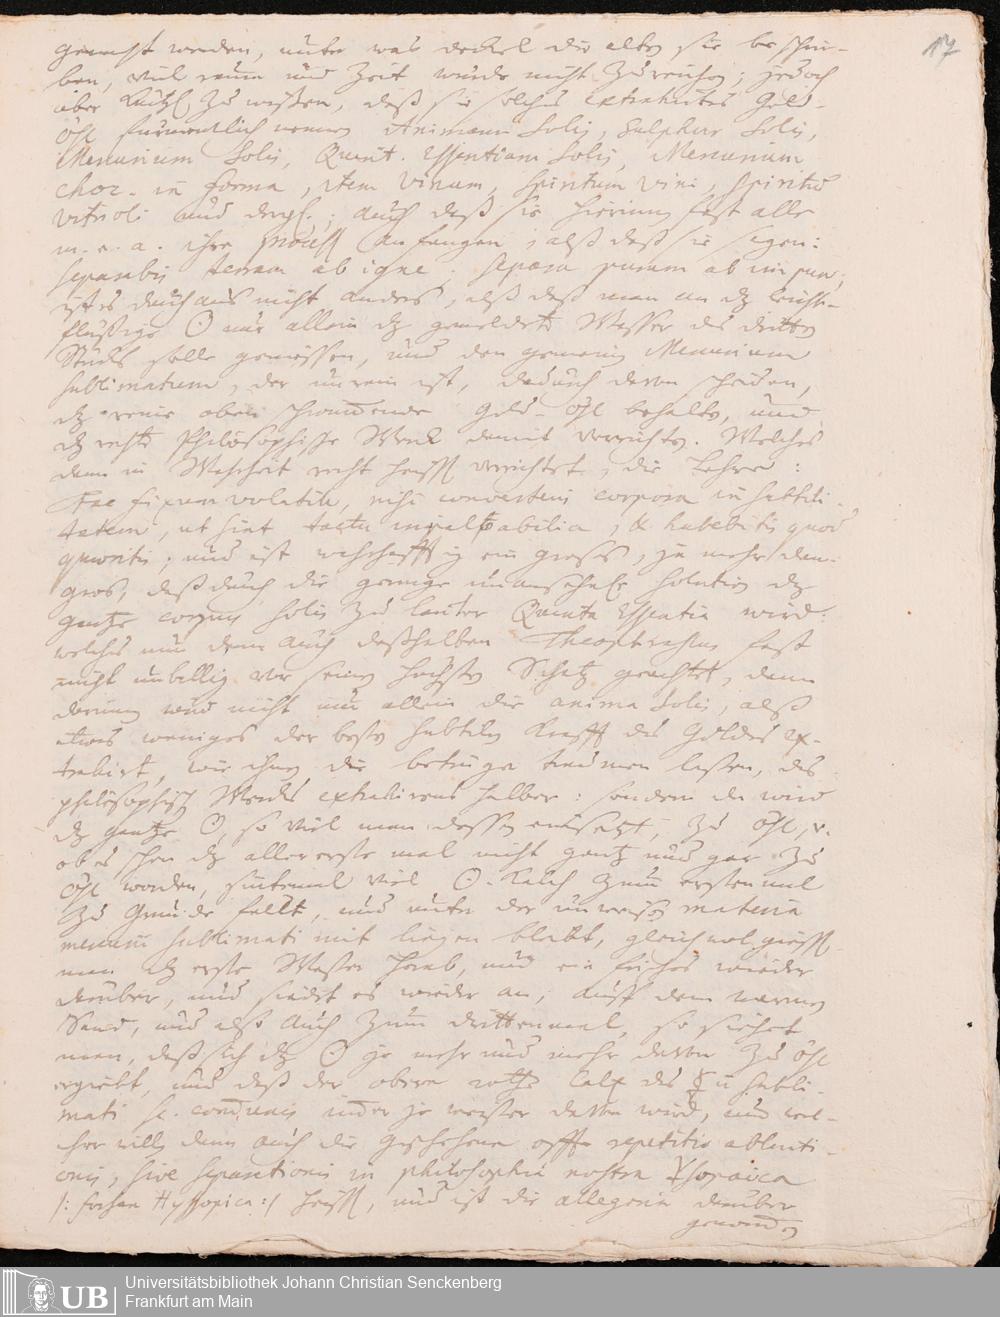 17
gemacht werden, unter was deckel die alten sie beschrie-
ben, viel raum und Zeit würde nicht Zureichen; jedoch
aber kürtzl. Zu wißen, daß sie solches extrahirtes Gold-
öhl fürnemlich nennen Animam Solis, Sulphur Solis,
Mercurium Solis, Quint. Essentiam Solis, Mercurium
in forma, item Vinum, Spiritum Vini, Spiritus
vitrioli und dergl.; auch daß sie hierinn fast alle
m. e. a. ihre process anfangen, alß daß sie sagen:
Separabis terram ab igne. Separa purum ab impuro,
ist es durchaus nicht anders, alß daß man an dz leicht-
flüßige ☉ nur allein dz gemeldete Wasser des dritten
Stücks solle gemessen, und den gemeinen Mercurium
sublimatum, der unrein ist, dadurch davon scheiden,
dz reine oben schwimmende Gold-öhl behalten, und
dz rechte Philosophische Werk damit verrichten. Welches
dann in Wahrheit recht heist verrichtet, die Lehre:
Fac fixum volatile, nisi convertens corpora in subtili-
tatem, ut sint tactu impalpabilia, & habebitis quod
quæritis; und ist wahrhafftig ein großes, ja mehr dan
gros, daß durch die geringe unansehnl. Solution dz
gantze corpus Solis Zu lauter Quinta Essentia wird:
welches nun dann auch deßhalben Theophrastus fast
nicht unbillig vor seinen höchsten Schatz geachtet, dann
darinn wird nicht nur allein die anima Solis, alß
etwas weniges der besten subtilen Krafft des Goldes ex-
trahirt, wie ihnen die betrüger traumen lassen, des
philosophisch Werks extrahirens halber: sondern es wird
dz gantze ☉, so viel man dessen einsetzt, Zu öhl, v.
ob es schon dz allererste mal nicht gantz und gar Zu
öhl worden, sintemal viel ☉-Kalch Zum erstenmal
Zu Grunde fällt, und unter der unreinen materia
mercurii sublimati mit liegen bleibt, gleichwol giesst
man dz erste Wasser herab, und ein frisches wieder
darüber, und siedet es wieder an, auff dem warmen
Sand, und also auch Zum drittenmal, so siehet
man, daß sich dz ☉ je mehr und mehr davon Zu öhl
ergiebt, und daß der obere rothe Calx des ☿ii subli-
mati sc. communis immer je weißer davon wird, um wel-
cher willen dann auch die geschehene offte repetitio abluti-
onis, sive separationis in philosophia nostra Ψsopaica
/: forsan Hyssopica :/ heist, und ist die allegoria darüber
geworden
Universitätsbibliothek Johann Christian Senckenberg
Frankfurt am Main
UB